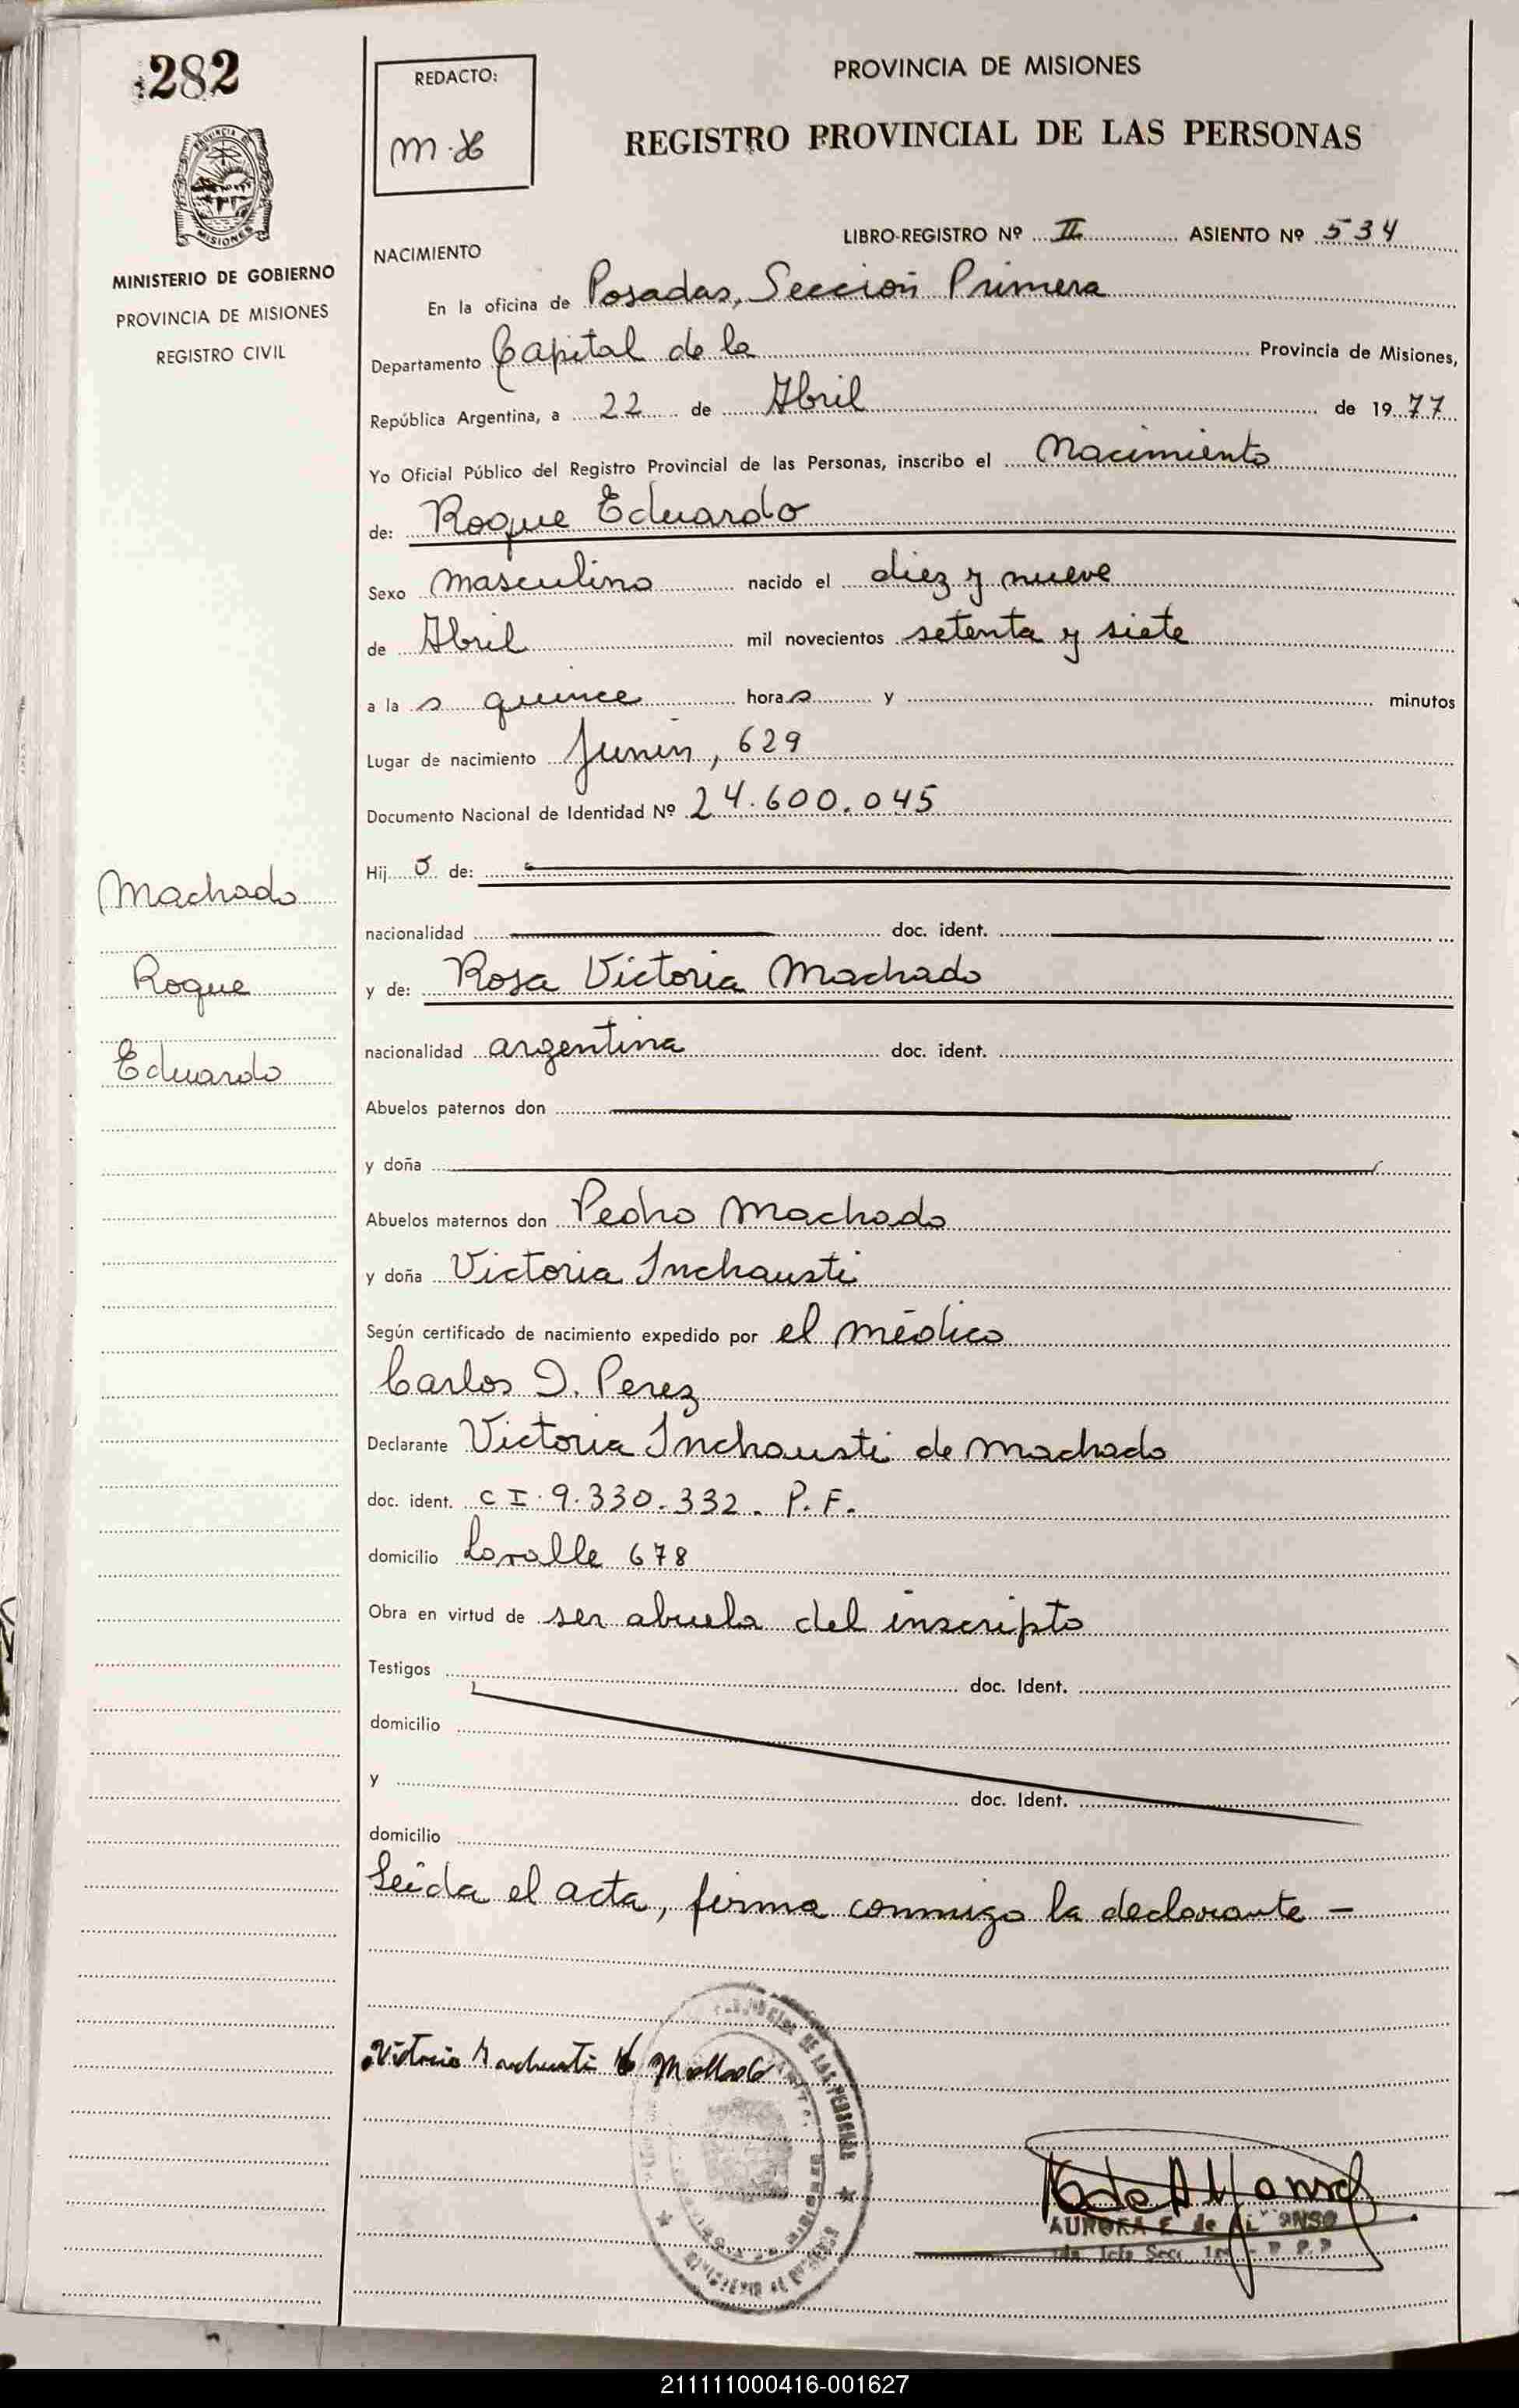 282
REDACTO:
M.H
PROVINCIA DE MISIONES
REGISTRO PROVINCIAL DE LAS PERSONAS
MISIONES
MINISTERIO DE GOBIERNO
PROVINCIA DE MISIONES
REGISTRO CIVIL
LIBRO-REGISTRO Nº II ASIENTO Nº 534
NACIMIENTO
En la oficina de Posadas, Sección Primera
Departamento Capital de la Provincia de Misiones,
República Argentina, a 22 de Abril de 1977
Yo Oficial Público del Registro Provincial de las Personas, inscribo el Nacimiento
de: Roque Eduardo
Sexo masculino nacido el diez y nueve
de Abril mil novecientos setenta y siete
a la s quince hora s y minutos
Lugar de nacimiento Junin, 629
Documento Nacional de Identidad Nº 24.600.045
Hij o de:
nacionalidad doc. ident.
y de: Rosa Victoria Machado
nacionalidad argentina doc. ident.
Abuelos paternos don
y doña
Abuelos maternos don Pedro Machado
y doña Victoria Inchausti
Según certificado de nacimiento expedido por el médico
Carlos D. Perez
Declarante Victoria Inchausti de Machado
doc. ident. CI. 9.330.332. P.F.
domicilio Lavalle 678
Obra en virtud de ser abuela del inscripto
Testigos doc. Ident.
domicilio
y doc. Ident.
domicilio
Leída el acta, firma conmigo la declarante –
Machado
Roque
Eduardo
Victoria Inchausti de Machado
DE LAS PERSONAS
AURORA E. de ALFONSO
211111000416-001627